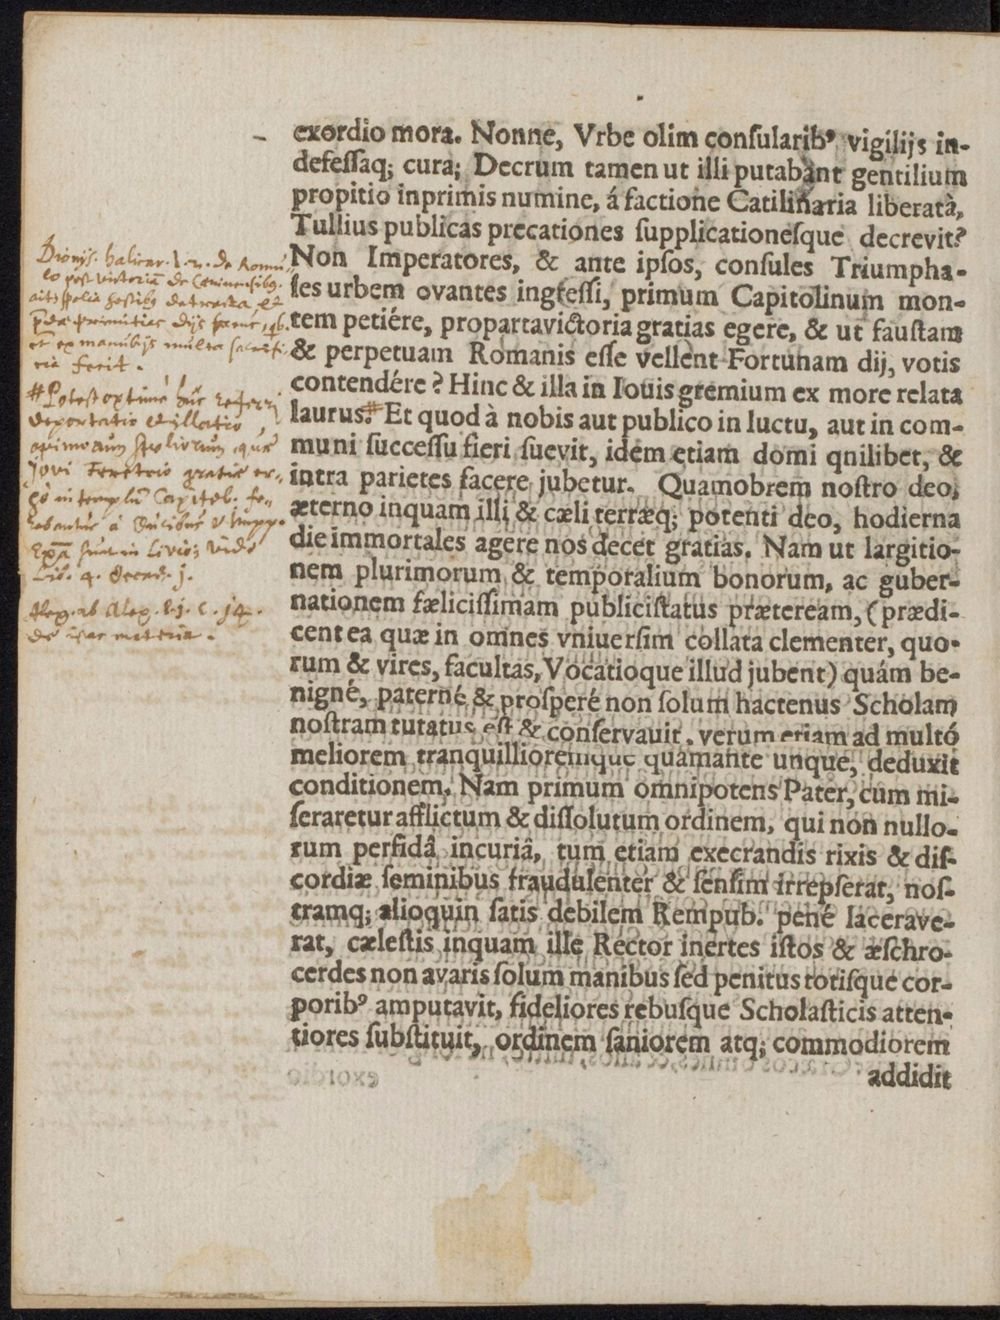 exordio mora. Nonne, Vrbe olim conſularibꝰ vigilijs in-
defeſſaq; cura; Decrum tamen ut illi putabant gentilium
propitio inprimis numine, á factione Catilinaria liberatà,
Tullius publicas precationes ſupplicationeſque decrevit?
Non Imperatores, & ante ipſos, conſules Triumpha-
les urbem ovantes ingreſſi, primum Capitolinum mon-
tem petiére, propartavictoria gratias egere, & ut fauſtam
& perpetuam Romanis eſſe vellent Fortunam dij, votis
contendére? Hinc & illa in Iouis gremium ex more relata
laurus? # Et quod à nobis aut publico in luctu, aut in com-
muni ſucceſſu fieri ſuevit, idem etiam domi qnilibet, &
intra parietes facere jubetur. Quamobrem noſtro deo,
æterno inquam illi & cæli terræq; potenti deo, hodierna
die immortales agere nos decet gratias. Nam ut largitio-
nem plurimorum & temporalium bonorum, ac guber-
nationem fæliciſſimam publiciſtatus præteream, (prædi-
cent ea quæ in omnes vniuerſim collata clementer, quo-
rum & vires, facultas, Vocatioque illud jubent) quám be-
nigné, paterné & proſperé non ſolum hactenus Scholam
noſtram tutatus eſt & conſervauit, verum etiam ad multó
meliorem tranquillioremque quamante unque, deduxit
conditionem. Nam primum omnipotens Pater, cum mi-
ſeraretur afflictum & diſſolutum ordinem, qui non nullo-
rum perfidâ incuriâ, tum etiam execrandis rixis & diſ-
cordiæ ſeminibus fraudulenter & ſenſim irrepſerat, noſ-
tramq; alioquin ſatis debilem Rempub. pené lacerave-
rat, cæleſtis inquam ille Rector inertes iſtos & æſchro-
cerdes non avaris ſolum manibus ſed penitus totiſque cor-
poribꝰ amputavit, fideliores rebuſque Scholaſticis atten-
tiores ſubſtituit, ordinem ſaniorem atq; commodiorem
addidit
Dionys. halicar. l. 2. de Romu
lo post victoriã de Cæninensibꝯ
ait: spolia hostibꝯ detracta et
primitias dijs
et ex manubijs multa sacrifi
cia fecit.
# Potest optimè huc referri
deportatio & illatio
opimorum spoliorum, quæ
Jovi Feretrio gratiæ er-
gò in templũ Capitol. fe-
rebantur à Ducibus & Impp.
Expã sunt in Livio; vide
Lib. 4. decad. j.
Alex. ab Alex. l. j. c. 14.
de hac materia.